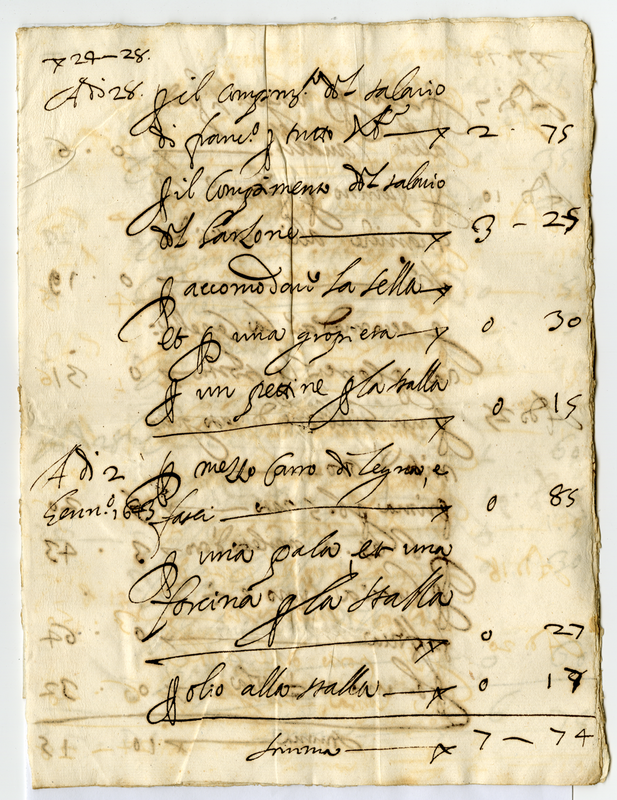 x 24 – 28.
Adi 28. p il Compim.to del salario
di franc.o p tutto x 2 · 75
p il Compimento del salario
del Garzone x 3 – 25
p accomodar la sella x
et p una gropiera x 0 30
p un pettine p la stalla
x 0 15
Adi 2 p mezzo Carro di legna, e
Genn.o 1643 fasci x 0 85
p una pala, et una
forcina p la stalla
x 0 27
p olio alla stalla x 0 17
summa x 7 – 74